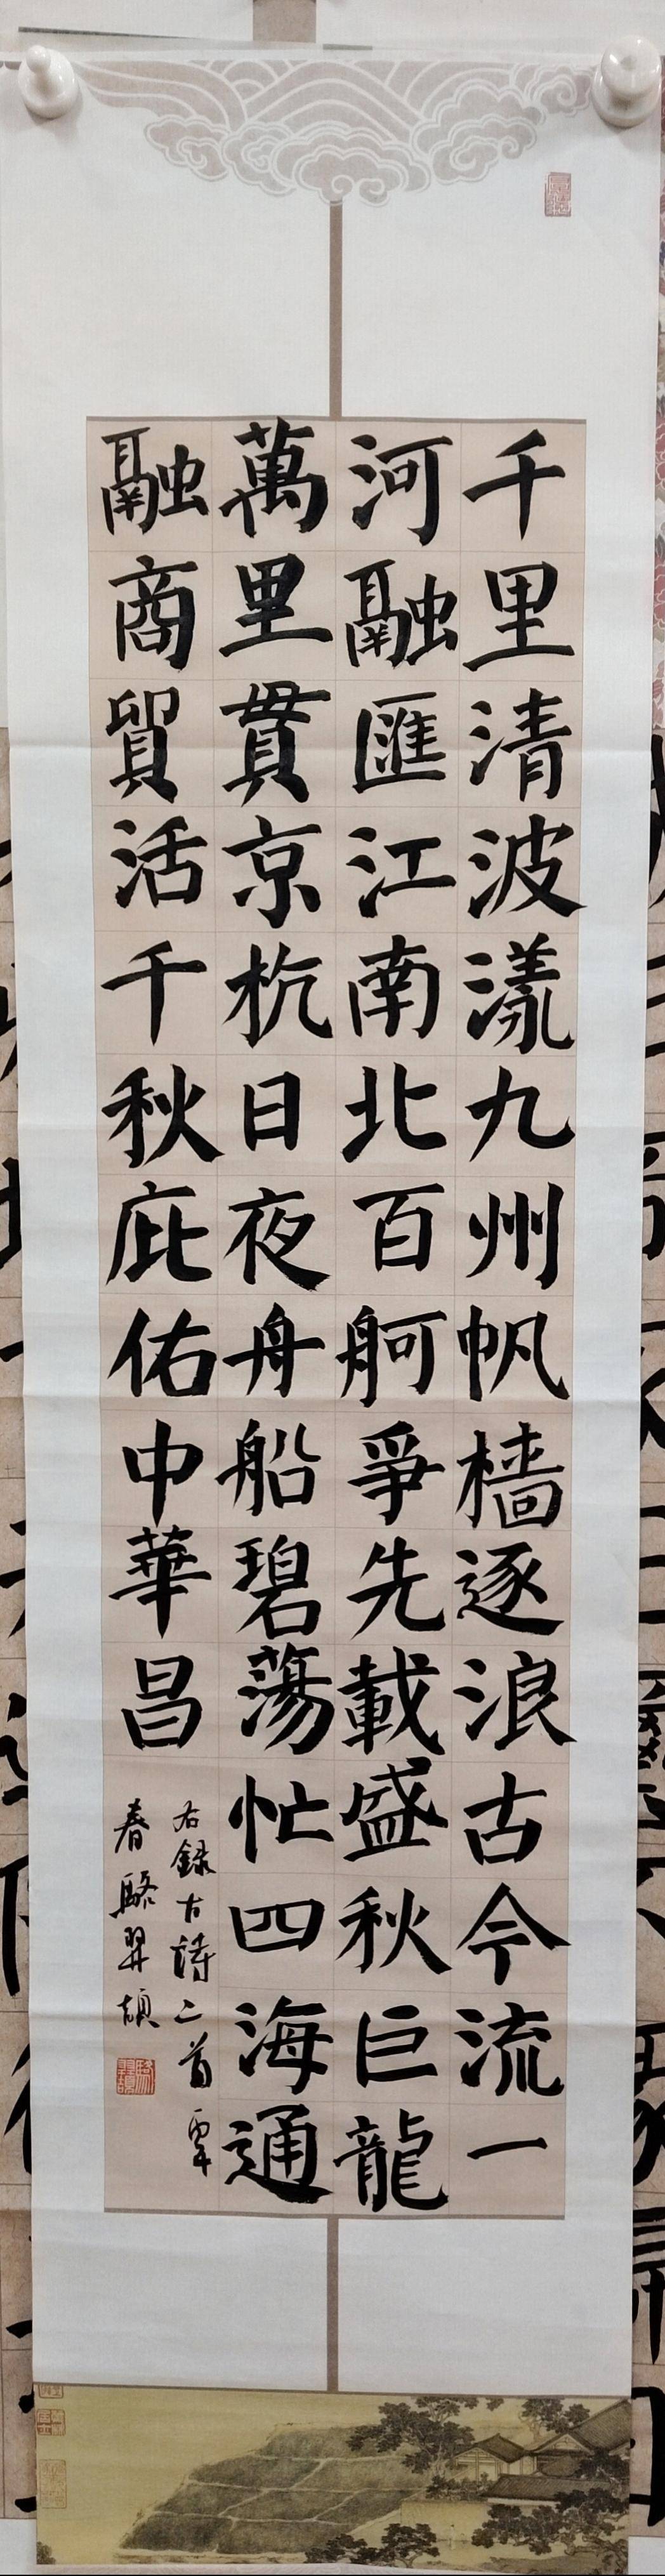 千里清波漾九州帆檣逐浪古今流一
河融匯江南北百舸爭先載盛秋巨龍
萬里貫京杭日夜舟船碧蕩忙四海通
融商貿活千秋庇佑中華昌
右録古詩二首
春駱羿頡